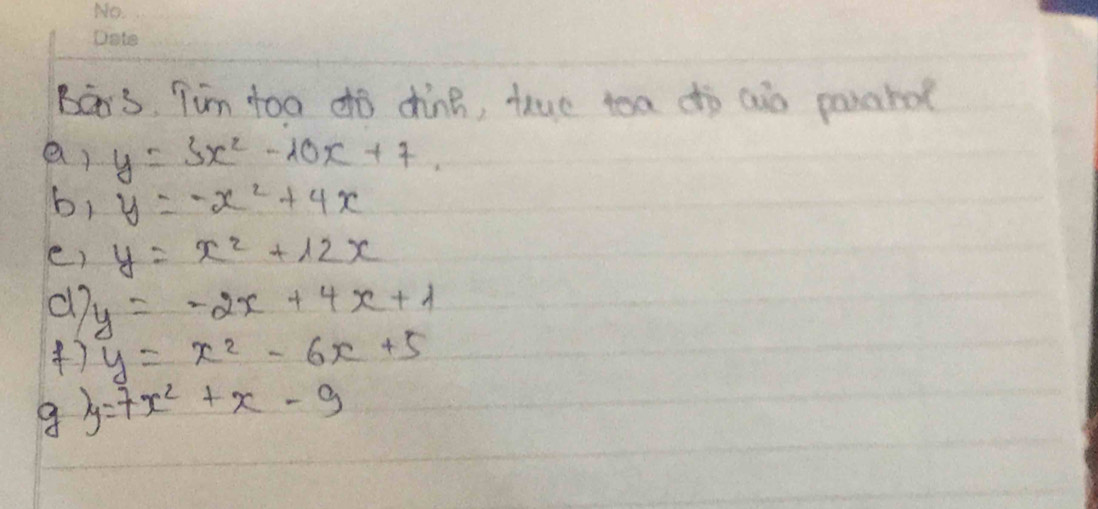 No.
Date
Bài 3. Tìm tọa độ đỉnh, trục toa độ của parabol
a, y = 3x² - 10x + 7.
b, y = -x² + 4x
c, y = x² + 12x
d) y = -2x + 4x + 1
f) y = x² - 6x + 5
g) y = 7x² + x - 9